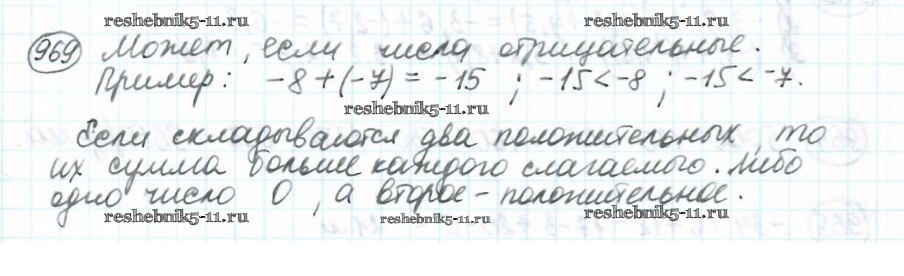 reshebnik5-11.ru reshebnik5-11.ru
969 Может, если числа отрицательные.
Пример: -8+(-7)=-15 ; -15<-8 ; -15<-7.
reshebnik5-11.ru
Если складываются два положительных, то
их сумма больше каждого слагаемого. Либо
одно число 0, а второе - положительное.
reshebnik5-11.ru reshebnik5-11.ru reshebnik5-11.ru